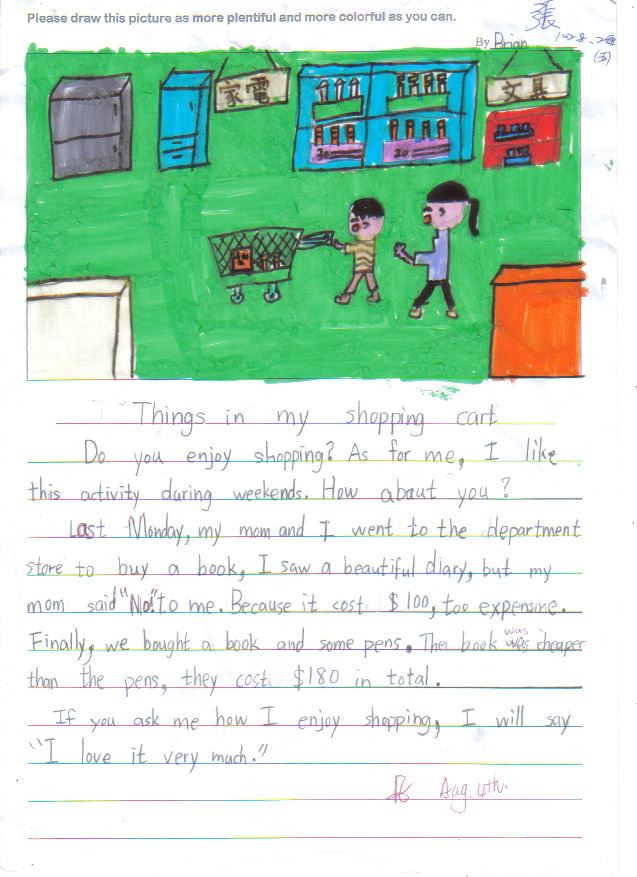 Please draw this picture as more plentiful and more colorful as you can.
張
By Brian
(五)
家電
文具
20
20
Things in my shopping cart
Do you enjoy shopping? As for me, I like
this activity during weekends. How about you?
Last Monday, my mom and I went to the department
store to buy a book, I saw a beautiful diary, but my
mom said "No!" to me. Because it cost $100, too expensive.
Finally, we bought a book and some pens. The book was cheaper
than the pens, they cost $180 in total.
If you ask me how I enjoy shopping, I will say
"I love it very much."
Aug. 4th.